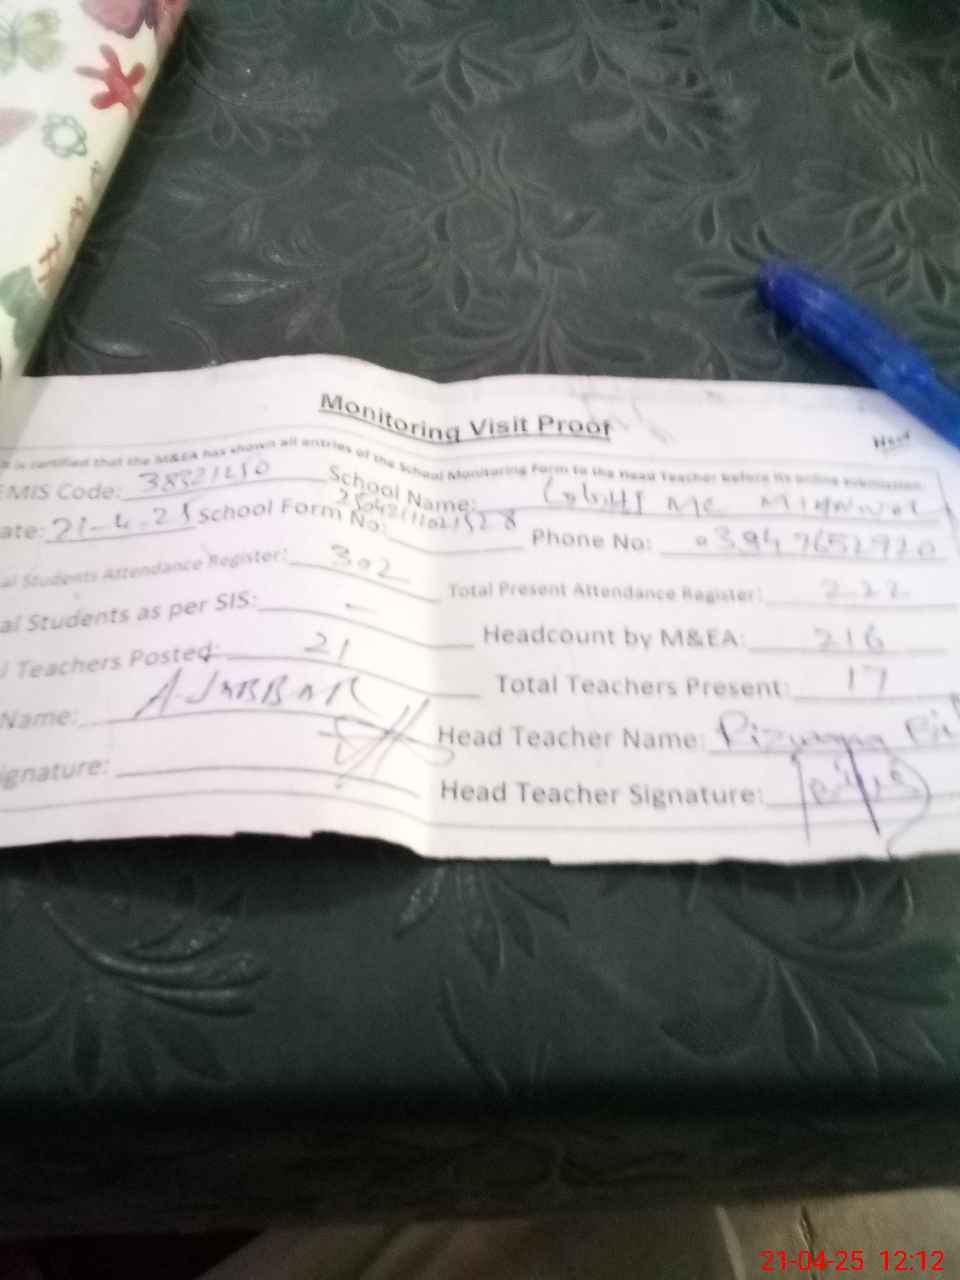 Monitoring Visit Proof
is certified that the M&EA has shown all entries of the School Monitoring Form to the Head Teacher before its online submission.
EMIS Code: 38321250 School Name: MC
ate: 21-4-25 School Form No: Phone No:
al Students Attendance Register: 302 Total Present Attendance Register: 222
al Students as per SIS: - Headcount by M&EA: 216
l Teachers Posted: 21 Total Teachers Present: 17
Name: A-JABBAR Head Teacher Name:
ignature: Head Teacher Signature:
21-04-25 12:12